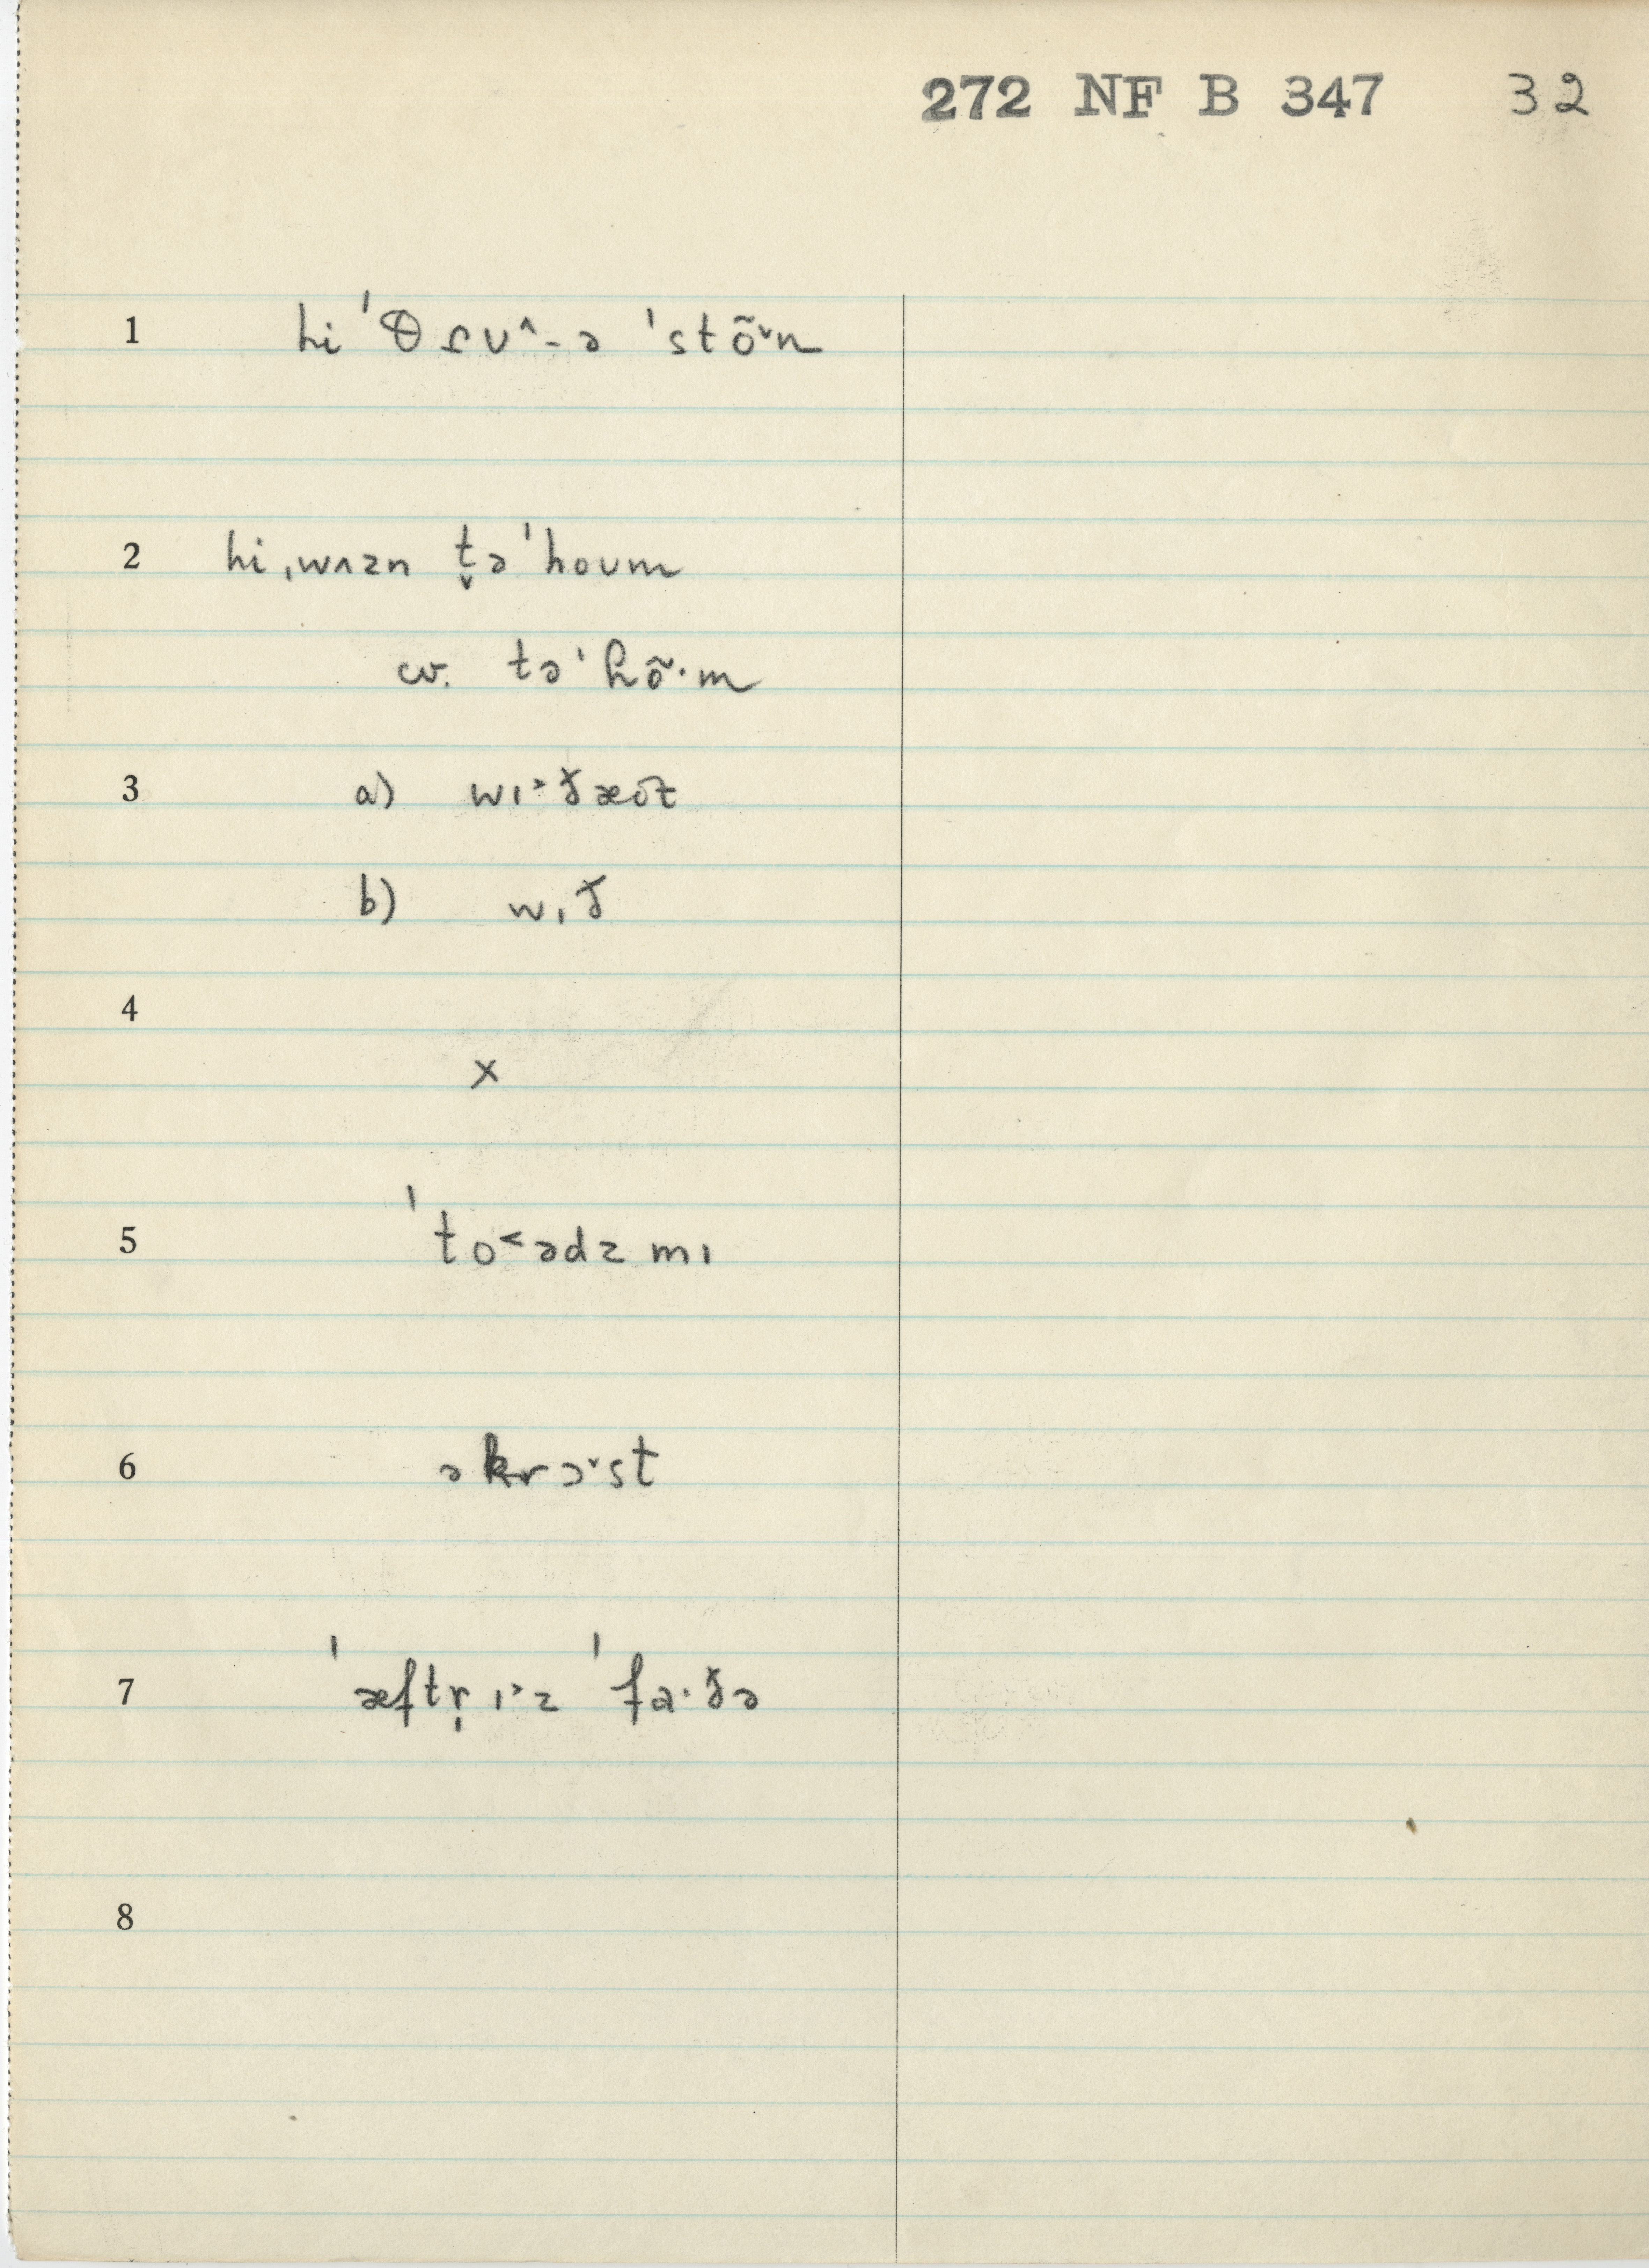 272 NF B 347 32
1 hi ˈθɾu^-ə ˈstõ˅n
2 hi ˌwʌzn t̬əˈhoum
w. təˈɦõ·m
3 a) wɪ˃ðæᴜt
b) wɪð
4
x
5 ˈto˂ədz mɪ
6 əkrɔ˅st
7 ˈæftr̩ ɪ˃z ˈfa·ðə
8